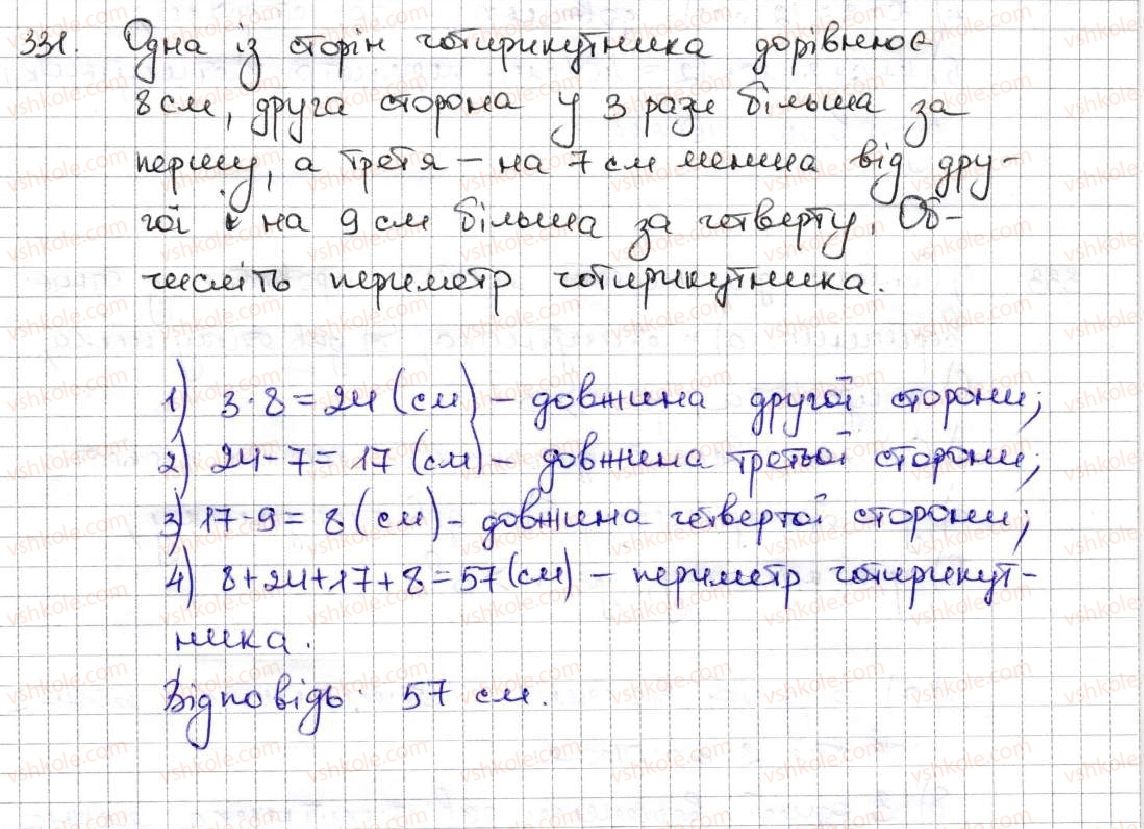 331. Одна із сторін чотирикутника дорівнює
8 см, друга сторона у 3 рази більша за
першу, а третя – на 7 см менша від дру-
гої і на 9 см більша за четверту. Об-
числіть периметр чотирикутника.
1) 3·8=24 (см) – довжина другої сторони;
2) 24-7=17 (см) – довжина третьої сторони;
3) 17-9=8 (см) – довжина четвертої сторони;
4) 8+24+17+8=57 (см) – периметр чотирикут-
ника.
Відповідь: 57 см.